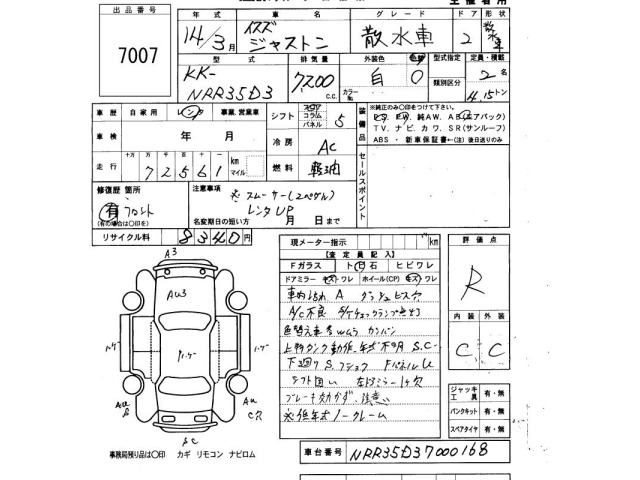 出品番号
7007
年式 車名 グレード ドア 形状
14/3月 イスズ ジャストン 散水車 2 散水車
型式 排気量 外装色 型式指定 定員・積載
KK-NRR35D3 7200 c.c. 自 カラーNo. 類別区分 2名 4.15トン
車歴 自家用 レンタ 事業、営業車
シフト フロア コラム パネル 5
装備品
※純正のみ〇印をつけて下さい。
P.S. P.W. 純AW. AB(エアバック)
TV. ナビ. カワ. SR(サンルーフ)
ABS ・ 新車保証書←(注)後日送りのみ
車検 年 月
冷房 AC
セールスポイント
走行 十万 万 千 百 十 一 km マイル
72561
燃料 軽油
修復歴 箇所
有 フロント
(有の場合は〇印を)
注意事項
※スムーサー(2ペダル)
レンタUP
名変期日の短い方 月 日まで
リサイクル料 8340円
現メーター指示 km
【査定員記入】
Fガラス トビ石 ヒビワレ
ドアミラー キズ ワレ ホイール(CP) キズ ワレ
車内汚れ A ダッシュビス穴
A/C不良
色替え車 カンバン
上物タンク動作 年式不明 S.C.
下廻りS. Fパネル U
左ドミラー
ブレーキ効かず 注意
※低年式ノークレーム
評価点
R
内装 外装
C C
ジャッキ 工具 有・無
パンクキット 有・無
スペアタイヤ 有・無
A3
AU3
S.C
事務局残り品は〇印 カギ リモコン ナビロム
車台番号 NRR35D37000168